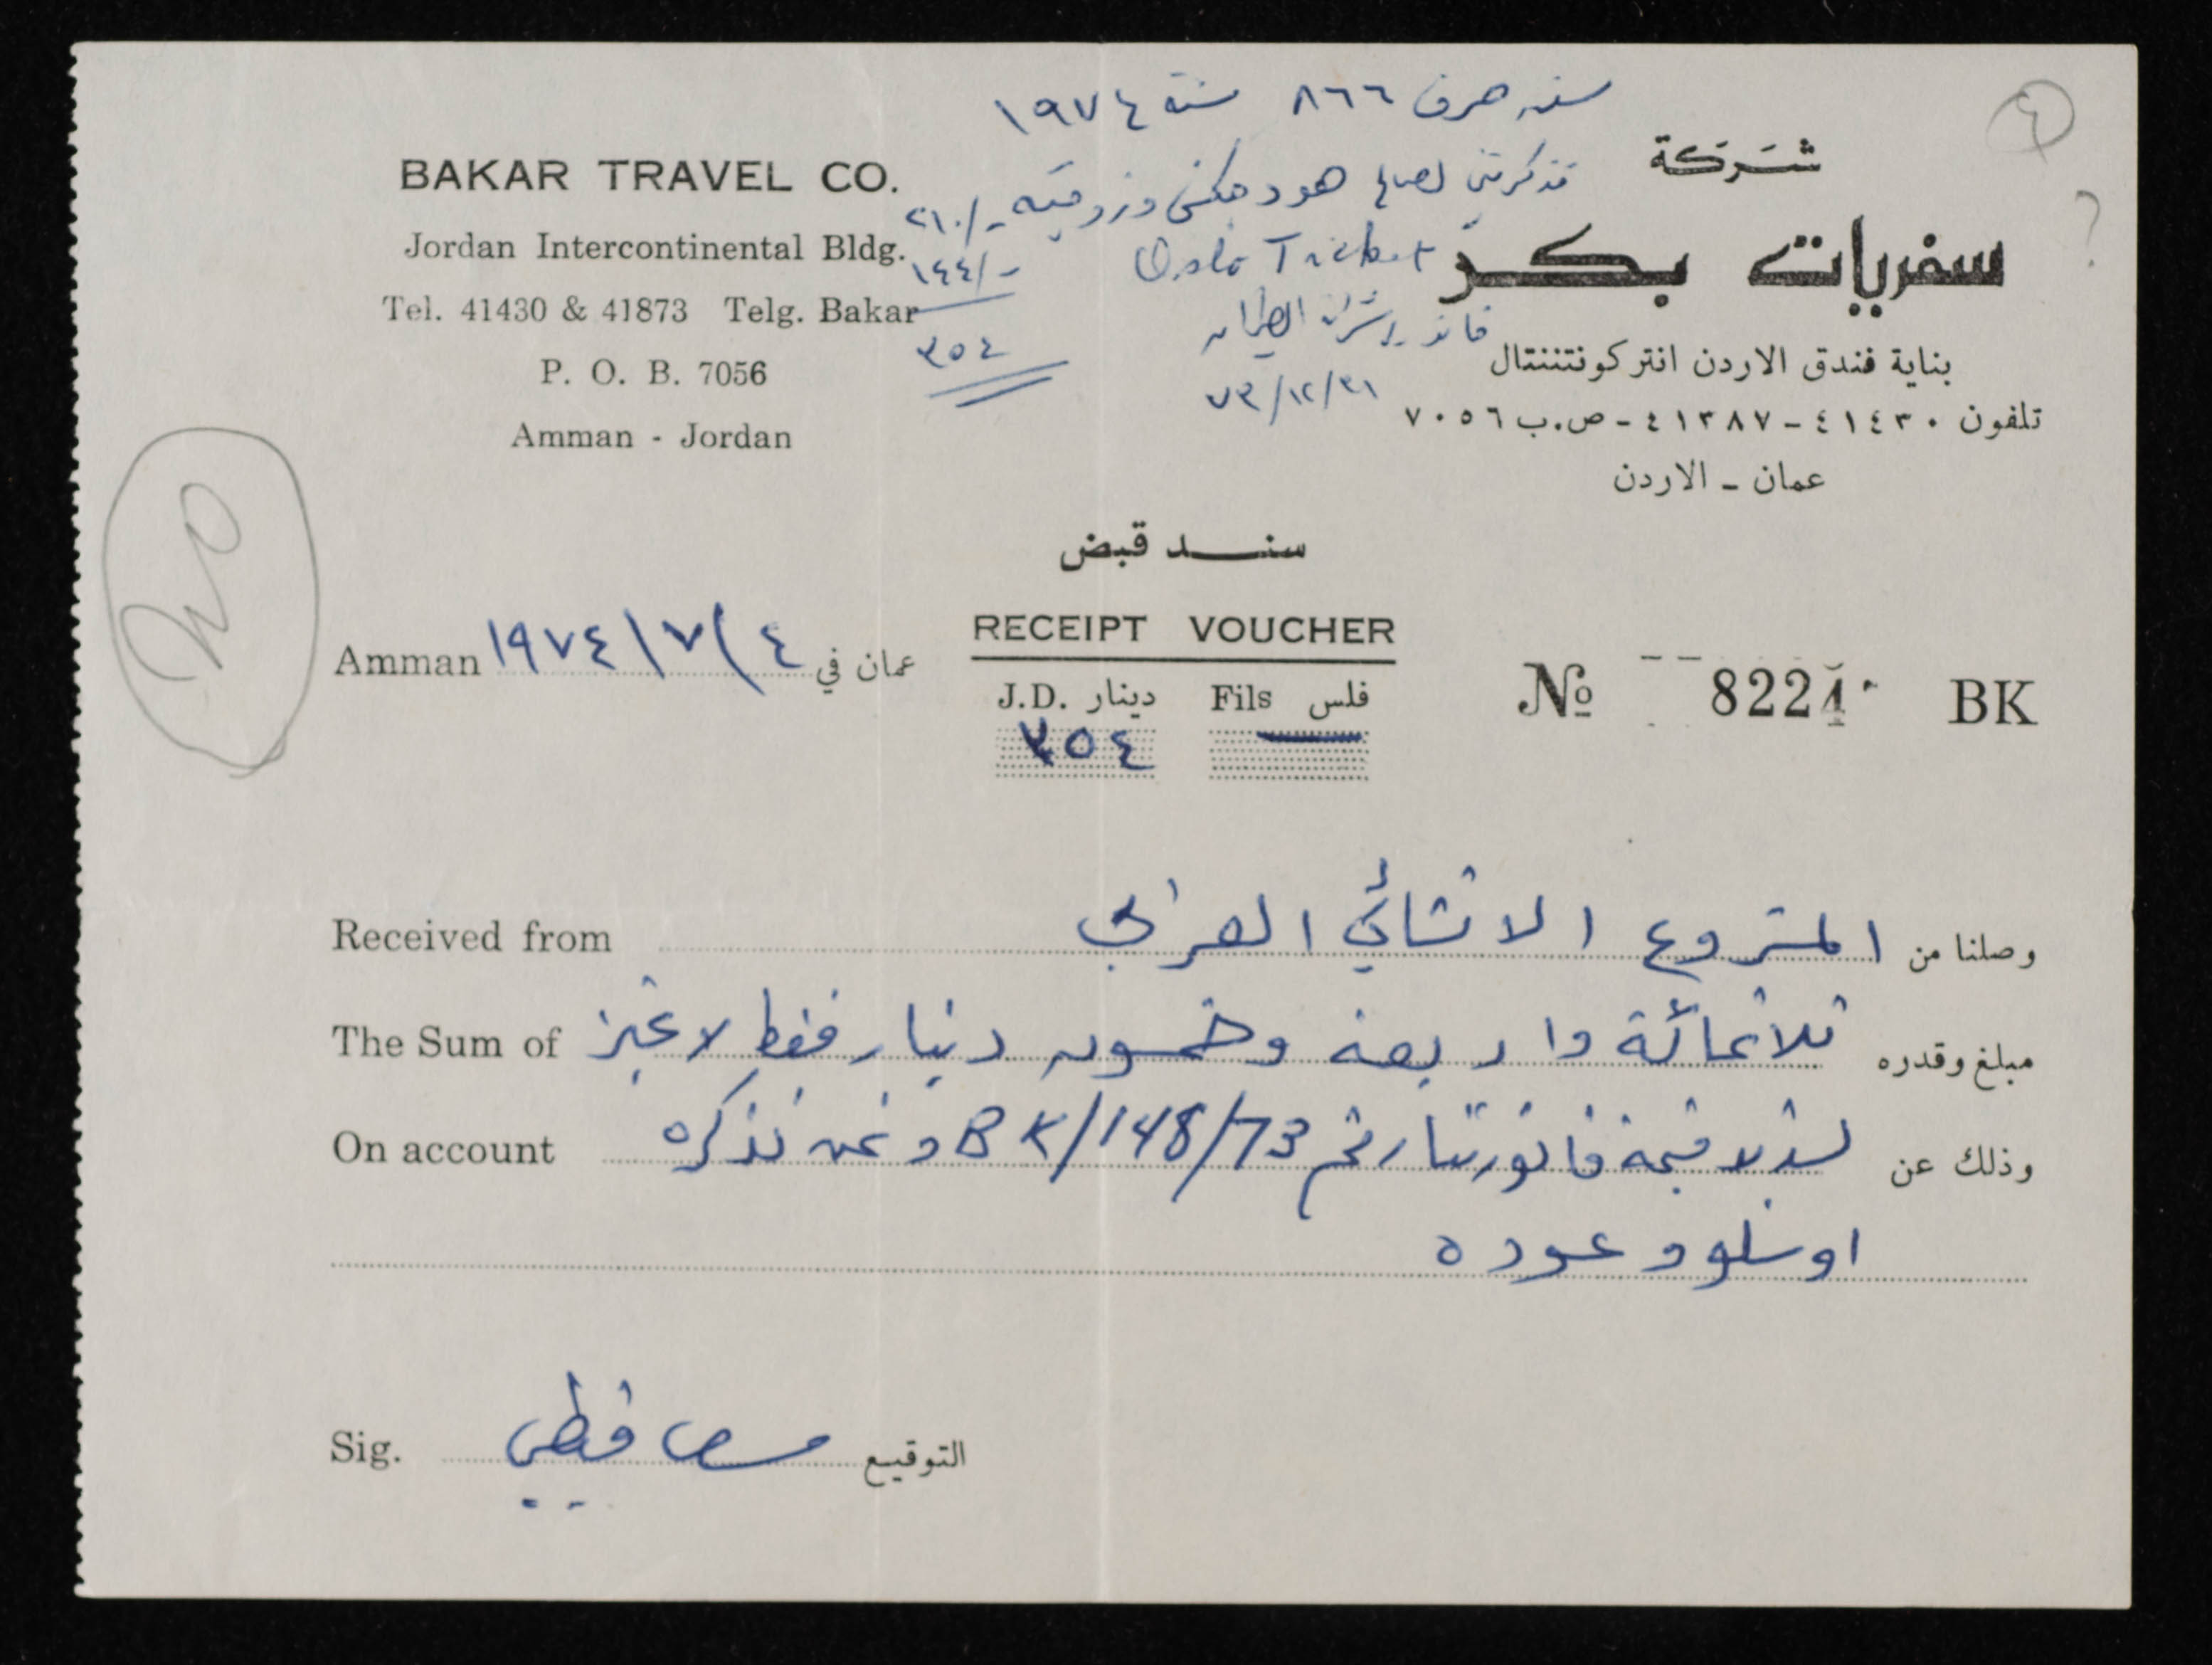 سند صرف ٨٦٦ سنة ١٩٧٤
تذكرتين لصالح هودجكن وزوجته ٢١٠/-
Oslo Ticket ١٤٤/-
٣٥٤
٧٣/١٢/٣١
٤
?
BAKAR TRAVEL CO.
Jordan Intercontinental Bldg.
Tel. 41430 & 41873 Telg. Bakar
P. O. B. 7056
Amman - Jordan
شركة
سفريات بكر
بناية فندق الاردن انتركونتننتال
تلفون ٤١٤٣٠ - ٤١٣٨٧ - ص.ب ٧٠٥٦
عمان - الاردن
سند قبض
RECEIPT VOUCHER
Amman ١٩٧٤/٧/٤ عمان في
J.D. دينار Fils فلس
٣٥٤ —
№ 8224 BK
Received from المشروع الانشائي العربي وصلنا من
The Sum of ثلاثمائة واربعة وخمسون دينار فقط لا غير مبلغ وقدره
On account لتسديد قيمة فاتورتنا رقم BK/148/73 وثمن تذكره وذلك عن
اوسلو وعوده
Sig. التوقيع